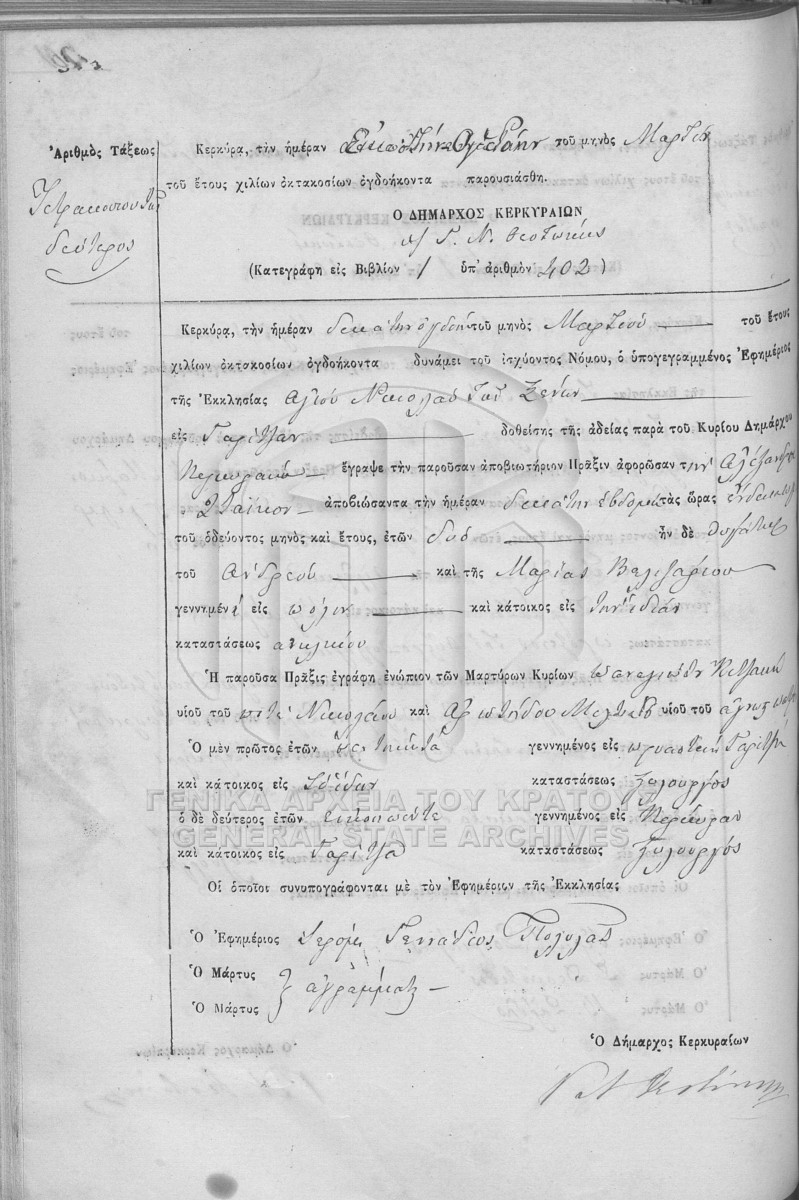 Ἀριθμὸς Τάξεως
Τετρακοσιοστὸς
δεύτερος
Κερκύρα, τὴν ἡμέραν Εἰκοστὴν Ὀγδόην τοῦ μηνὸς Μαρτίου
τοῦ ἔτους χιλίων ὀκτακοσίων ὀγδοήκοντα παρουσιάσθη.
Ο ΔΗΜΑΡΧΟΣ ΚΕΡΚΥΡΑΙΩΝ
Γ. Ν. Θεοτόκης
(Κατεγράφη εἰς Βιβλίον 1 ὑπ' ἀριθμὸν 402)
Κερκύρα, τὴν ἡμέραν δεκάτην ὀγδόην τοῦ μηνὸς Μαρτίου τοῦ ἔτους
χιλίων ὀκτακοσίων ὀγδοήκοντα δυνάμει τοῦ ἰσχύοντος Νόμου, ὁ ὑπογεγραμμένος Ἐφημέριος
τῆς Ἐκκλησίας Ἁγίου Νικολάου τῶν Ξένων
εἰς Γαρίτζαν δοθείσης τῆς ἀδείας παρὰ τοῦ Κυρίου Δημάρχου
ἔγραψε τὴν παροῦσαν ἀποβιωτήριον Πρᾶξιν ἀφορῶσαν την Ἀλεξάνδρα
ἀποβιώσαντα τὴν ἡμέραν δεκάτην ἑβδόμη τὰς ὥρας ἑνδεκα
τοῦ ὁδεύοντος μηνὸς καὶ ἔτους, ἐτῶν δύο ἦν δὲ θυγάτηρ
τοῦ Ἀνδρέου καὶ τῆς Μαρίας Βελισαρίου
γεννημένη εἰς πόλιν καὶ κάτοικος εἰς τὴν ἰδίαν
καταστάσεως ἀνηλίκου
Ἡ παροῦσα Πρᾶξις ἐγράφη ἐνώπιον τῶν Μαρτύρων Κυρίων Παναγιώτη
υἱοῦ τοῦ ποτὲ Νικολάου καὶ υἱοῦ τοῦ
Ὁ μὲν πρῶτος ἐτῶν γεννημένος εἰς προαστεῖον Γαρίτζα
καὶ κάτοικος εἰς καταστάσεως ξυλουργός
ὁ δὲ δεύτερος ἐτῶν εικοσιπέντε γεννημένος εἰς Κερκύραν
καὶ κάτοικος εἰς Γαρίτζα καταστάσεως ξυλουργός
Οἱ ὁποῖοι συνυπογράφονται μὲ τὸν Ἐφημέριον τῆς Ἐκκλησίας
Ὁ Ἐφημέριος Ἱερομ. Γεννάδιος Πολυλᾶς
Ὁ Μάρτυς
ἀγράμματοι
Ὁ Μάρτυς
Ὁ Δήμαρχος Κερκυραίων
ΓΕΝΙΚΑ ΑΡΧΕΙΑ ΤΟΥ ΚΡΑΤΟΥΣ
GENERAL STATE ARCHIVES